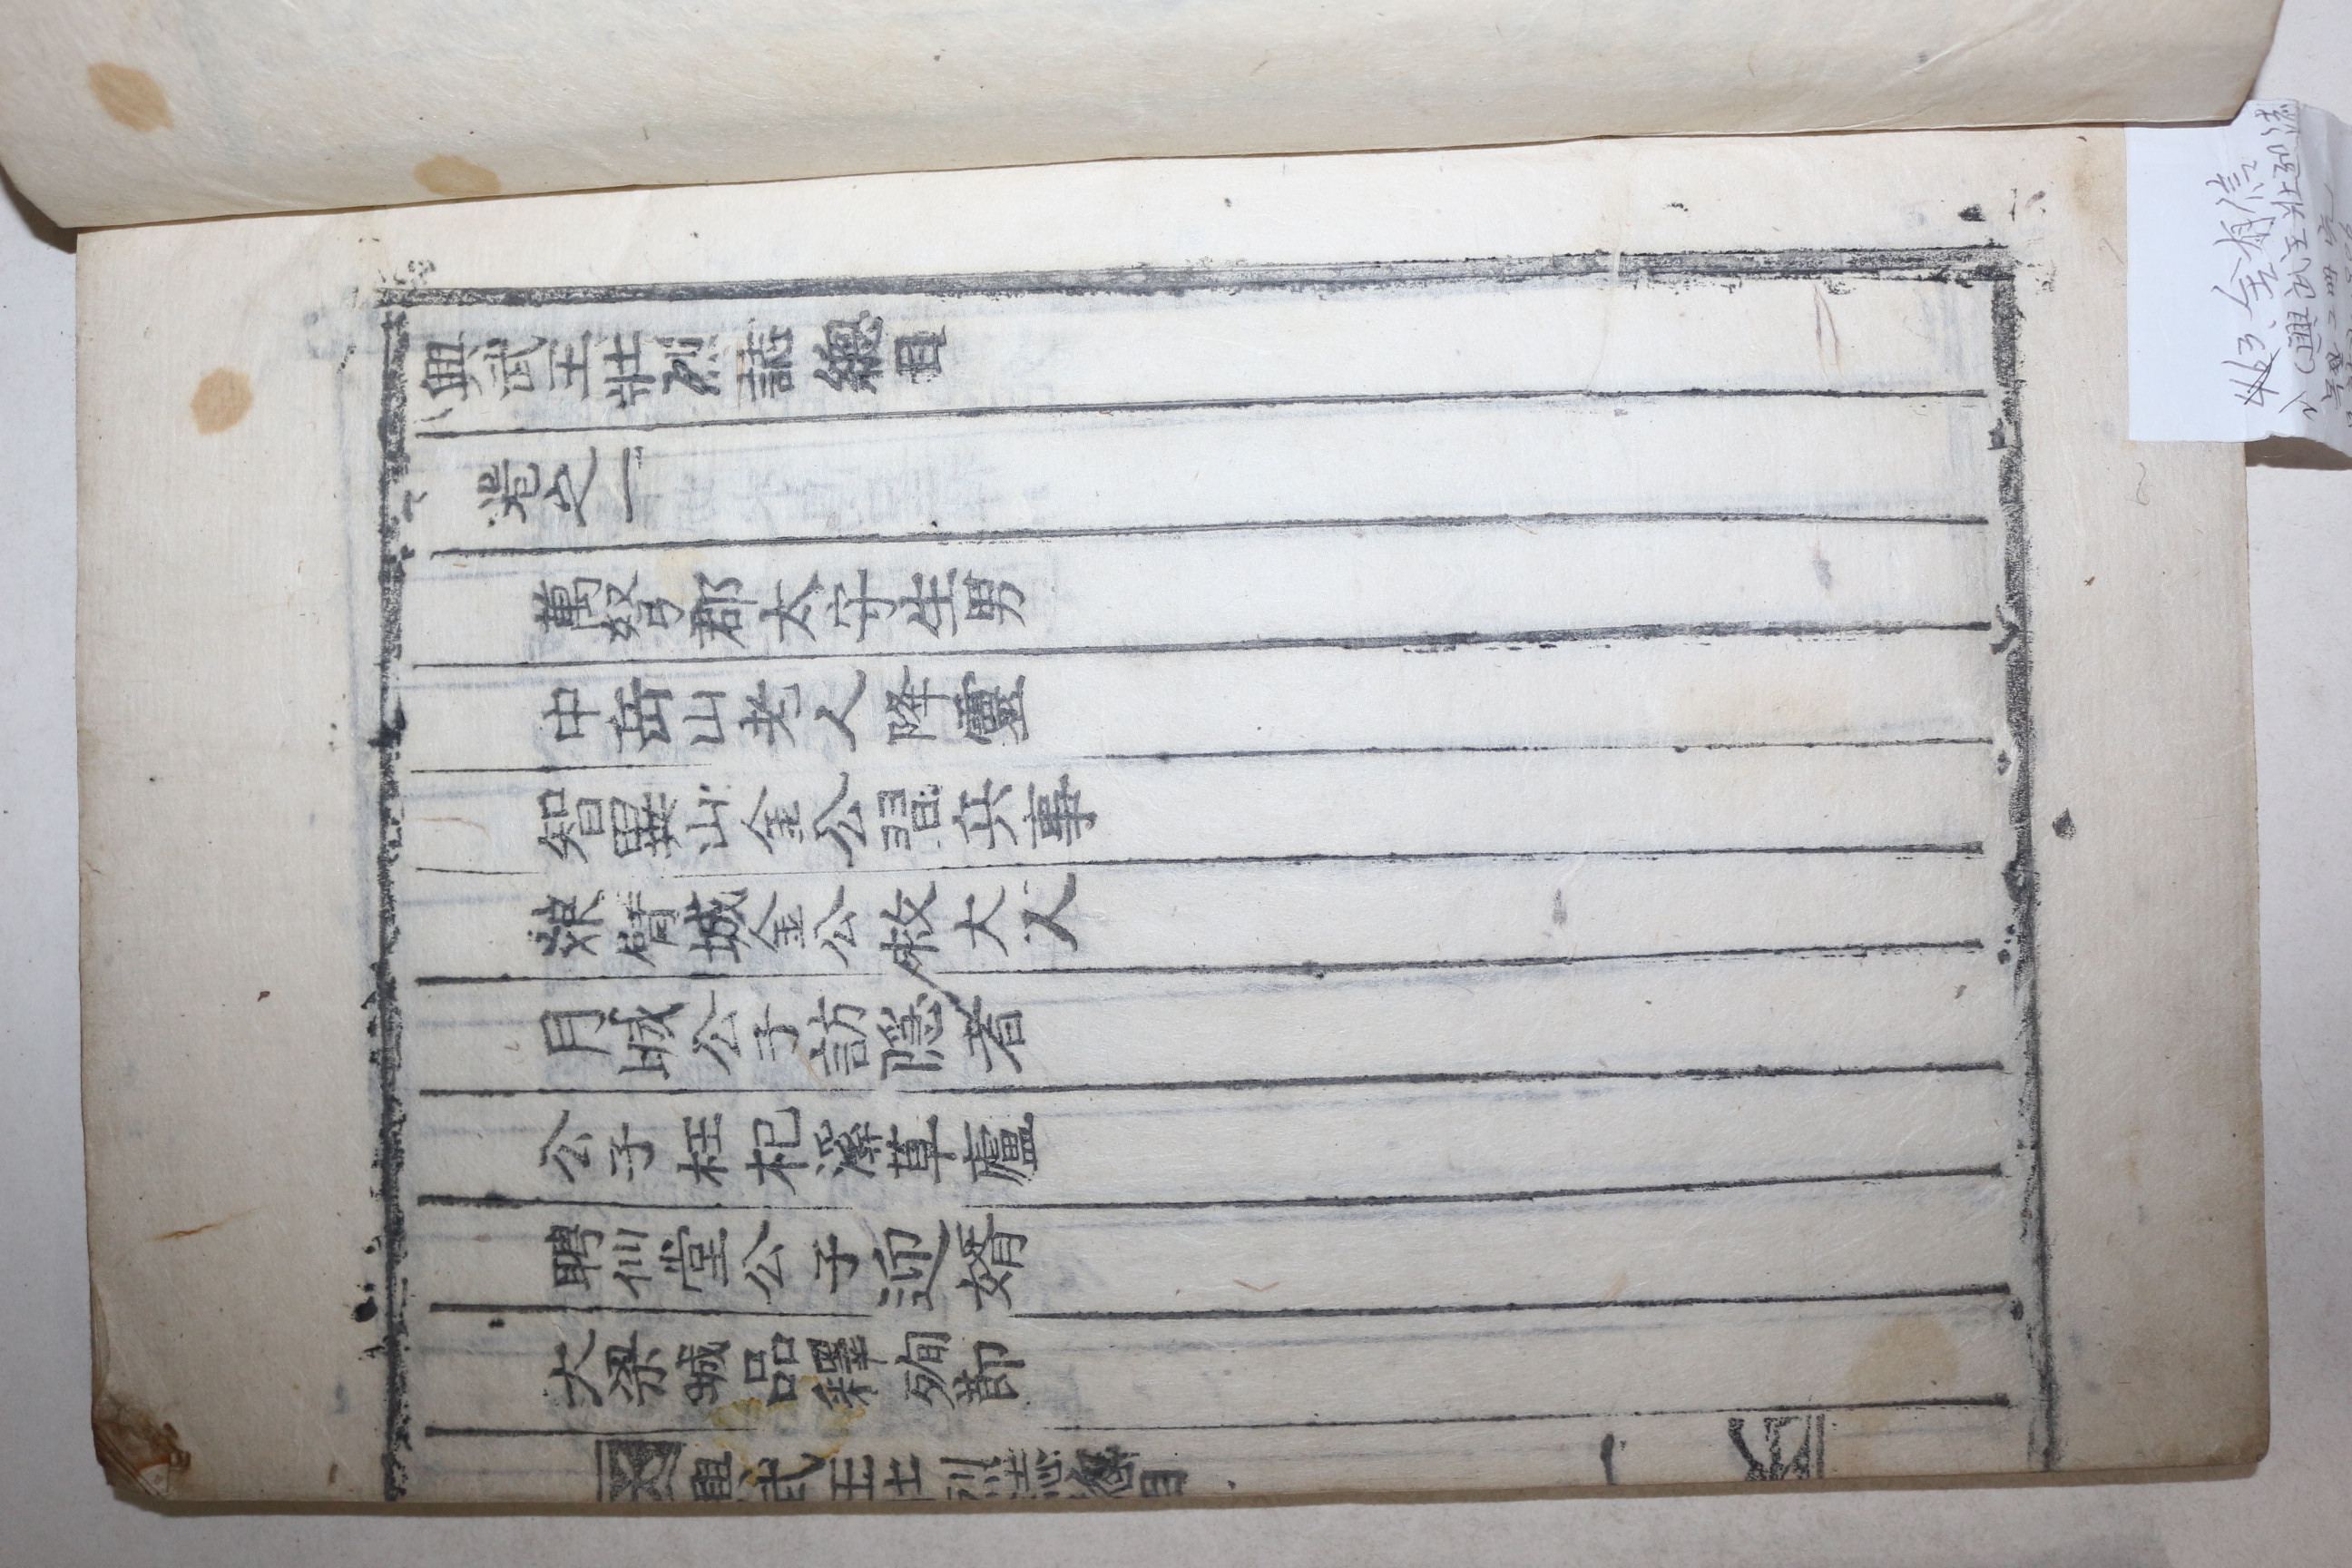 興武王壯烈誌總目
卷之一
萬弩郡太守生男
中岳山老人降靈
智異山金公習兵事
娘臂城金公救大人
月城公子訪隱者
公子枉杞溪草廬
聘仙堂公子迎婿
大梁城品釋殉節
興武王壯烈誌總目 一
金有信
(興武王壯烈誌